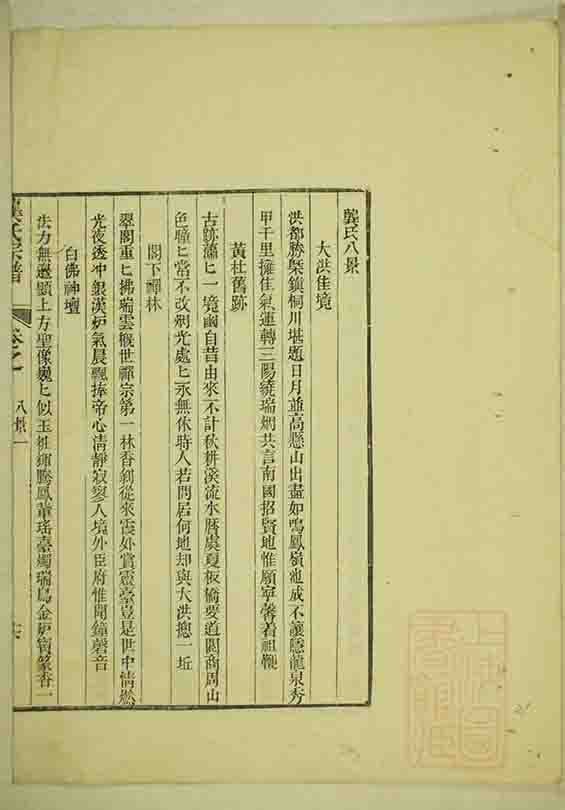 龔氏八景
大洪佳境
洪都勝槩鎮桐川堪題日月並高懸山出盡如鳴鳳嶺池成不讓隱龍泉秀
甲千里擁佳氣運轉三陽繞瑞烟共言南國招賢地惟願寧馨着祖鞭
黃杜舊跡
古跡蕭匕一境幽自昔由來不計秋耕溪流水曆虞夏板橋要道閱商周山
色曈匕當不改湖光處匕永無休時人若問居何地却與大洪摠一坵
閣下禪林
翠閣重匕拂瑞雲緱世禪宗第一林香剎從來霞外賞靈臺豈是世中情燃
光夜透冲銀漢炉氣晨飄捧帝心清靜寂寥人境外臣府惟聞鐘磬音
白佛神壇
法力無邊顯上方聖像巍匕似玉粧鳳輦瑤臺燭瑞烏金炉寶篆香一
八景一